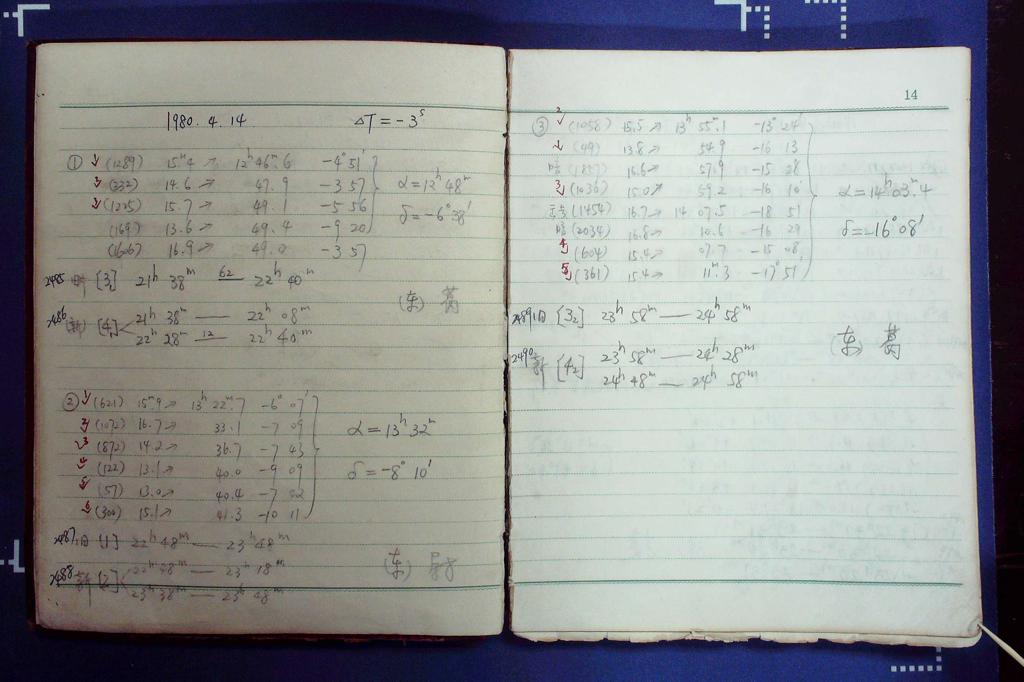 1980. 4. 14 ΔT = -3ˢ
① (1289) 15ᵐ4 ↗ 12ʰ46ᵐ.6 -4° 51'
(332) 14.6 ↗ 47.9 -3 57
(1225) 15.7 ↗ 49.1 -5 56
(169) 13.6 ↗ 49.4 -9 20
(1606) 16.9 ↗ 49.0 -3 57
α = 12ʰ 48ᵐ
δ = -6° 38'
2485 [3₁] 21ʰ 38ᵐ —62— 22ʰ 40ᵐ
2486 (新) [4₁] 21ʰ 38ᵐ — 22ʰ 08ᵐ
22ʰ 28ᵐ —12— 22ʰ 40ᵐ
(东)
② (621) 15ᵐ.9 ↗ 13ʰ 22ᵐ.7 -6° 07'
(1072) 16.7 ↗ 33.1 -7 09
(872) 14.2 ↗ 36.7 -7 43
(122) 13.1 ↗ 40.0 -9 09
(57) 13.0 ↗ 40.4 -7 02
(300) 15.1 ↗ 41.3 -10 11
α = 13ʰ 32ᵐ
δ = -8° 10'
2487 旧 [1] 22ʰ 48ᵐ — 23ʰ 48ᵐ
2488 新 [2] 22ʰ 48ᵐ — 23ʰ 18ᵐ
23ʰ 38ᵐ — 23ʰ 48ᵐ
(东)
14
③ 2 (1058) 15.5 ↗ 13ʰ 55ᵐ.1 -13° 24'
(49) 13.8 ↗ 54.9 -16 13
暗 (1857) 16.6 ↗ 57.9 -15 28
3 (1036) 15.0 ↗ 59.2 -16 10
(1454) 16.7 ↗ 14 07.5 -18 51
暗 (2034) 16.8 ↗ 10.6 -16 29
4 (604) 15.4 ↗ 07.7 -15 08
5 (361) 15.4 ↗ 11ᵐ.3 -17 51
α = 14ʰ03ᵐ.4
δ = -16° 08'
2489 旧 [3₂] 23ʰ 58ᵐ — 24ʰ 58ᵐ
2490 新 [4₂] 23ʰ 58ᵐ — 24ʰ 28ᵐ
24ʰ 48ᵐ — 24ʰ 58ᵐ
(东)